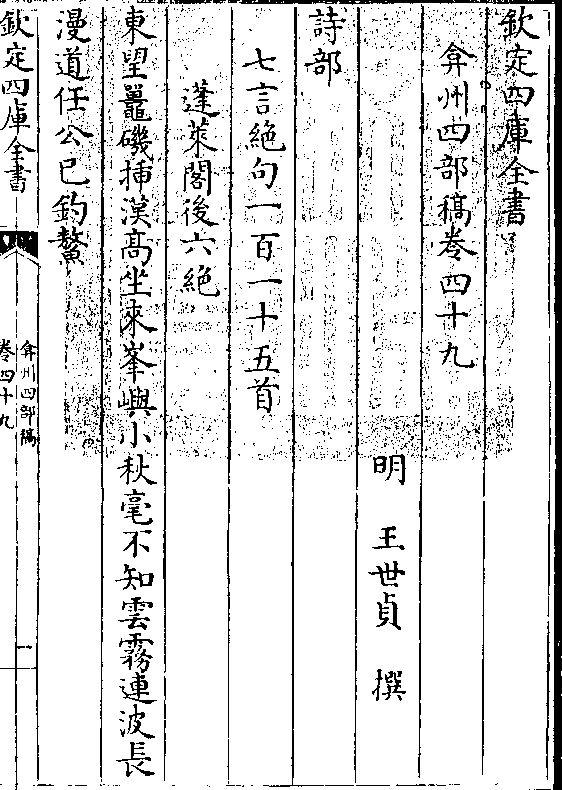 欽定四庫全書
弇州四部稿卷四十九
明 王世貞 撰
詩部
七言絶句一百一十五首
蓬萊閣後六絶
東望鼉磯揷漢髙坐來峯嶼小秋毫不知雲霧連波長
漫道任公已釣鰲
欽定四庫全書
弇州四部稿
卷四十九
一